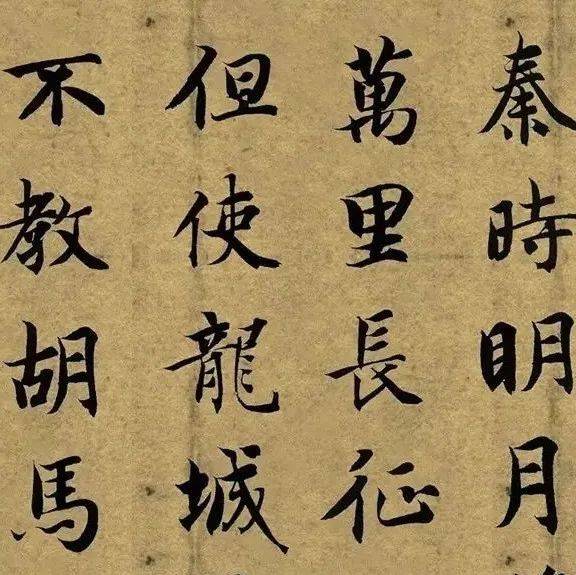 秦時明月
萬里長征
但使龍城
不教胡馬